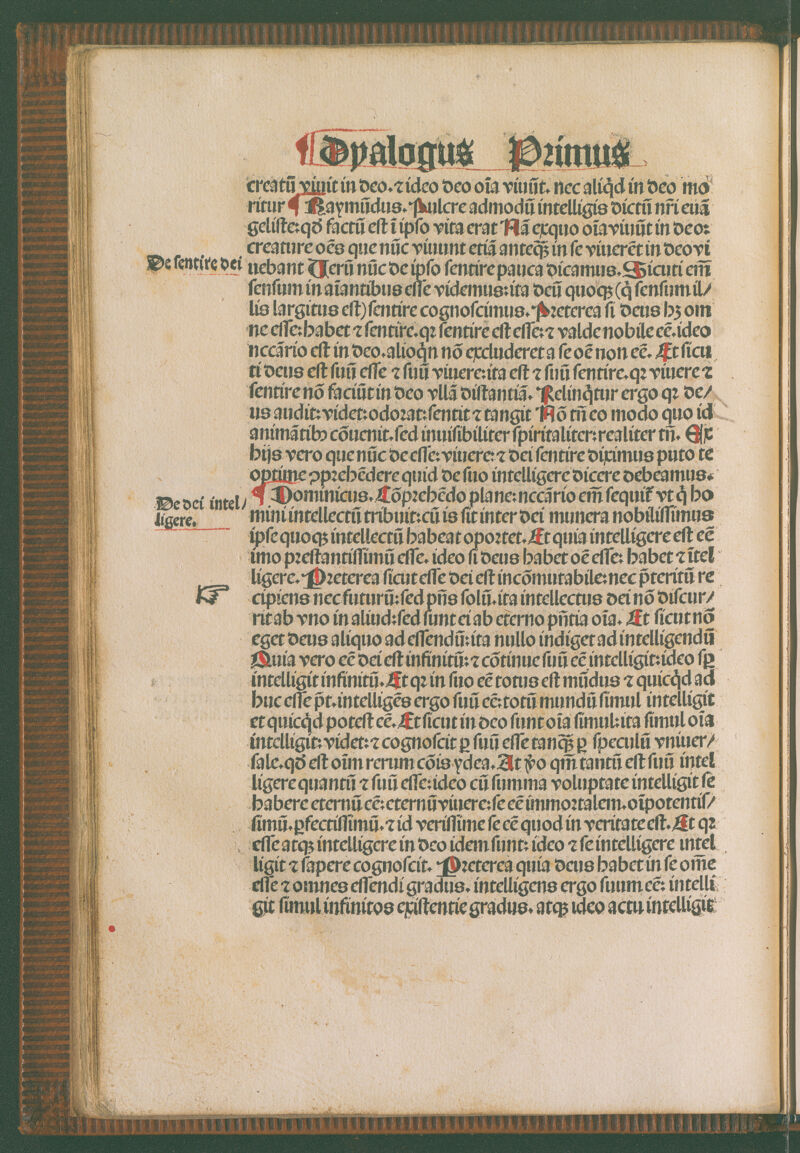 ¶ Dyalogus Primus
creatū viuit in deo. ⁊ ideo deo oīa viuūt. nec aliq̇d in deo mo
ritur ¶ Raymūdus. Pulcre admodū intelligis dictū nr̄i euā
geliste: qđ factū est ī ipso vita erat Nā exquo oīa viuūt in deo:
creature oēs que nūc viuunt etiā anteqꝫ in se viuerēt in deo vi
De sentire dei
uebant Uerū nūc de ipso sentire pauca dicamus. Sicuti em̄
sensum in aīantibus esse videmus: ita deū quoqꝫ (q̇ sensum il/
lis largitus est) sentire cognoscimus. Preterea si deus hꝫ om
ne esse: habet ⁊ sentire. qꝛ sentire est esse: ⁊ valde nobile eē. ideo
nccārio est in deo. alioq̇n nō excluderet a se oē non eē. Et sicu
ti deus est suū esse ⁊ suū viuere: ita est ⁊ suū sentire. qꝛ viuere ⁊
sentire nō faciūt in deo vllā distantiā. Relinq̇tur ergo qꝛ de/
us audit: videt: odorat: sentit ⁊ tangit Nō tn̄ eo modo quo id
animātibꝰ cōuenit. sed inuisibiliter spiritaliter: realiter tn̄. Ex
hijs vero que nūc de esse: viuere: ⁊ dei sentire diximus puto te
optime ↄprehēdere quid de suo intelligere dicere debeamus.
De dei intel/
ligere.
¶ Dominicus. Cōprehēdo plane: nccārio em̄ sequit̄ vt q̇ ho
mini intellectū tribuit: cū is sit inter dei munera nobilissimus
ipse quoqꝫ intellectū habeat oportet. Et quia intelligere est eē
imo prestantissimū esse. ideo si deus habet oē esse: habet ⁊ ītel
ligere. Preterea sicut esse dei est incōmutabile: nec p̄teritū re
☞
cipiens nec futurū: sed pn̄s solū. ita intellectus dei nō discur/
rit ab vno in aliud: sed sunt ei ab eterno pn̄tia oīa. Et sicut nō
eget deus aliquo ad essendū: ita nullo indiget ad intelligendū
Quia vero eē dei est infinitū: ⁊ cōtinue suū eē intelligit: ideo sꝑ
intelligit infinitū. Et qꝛ in suo eē totus est mūdus ⁊ quicq̇d ad
huc esse p̄t. intelligēs ergo suū eē: totū mundū simul intelligit
et quicq̇d potest eē. Et sicut in deo sunt oīa simul: ita simul oīa
intelligit: videt: ⁊ cognoscit ꝑ suū esse tanqꝫ ꝑ speculū vniuer/
sale. qđ est oīm rerum cōis ydea. At ꝟo qm̄ tantū est suū intel
ligere quantū ⁊ suū esse: ideo cū summa voluptate intelligit se
habere eternū eē: eternū viuere: se eē immortalem. oīpotentis/
simū. ꝑfectissimū. ⁊ id verissime se eē quod in veritate est. Et qꝛ
esse atqꝫ intelligere in deo idem sunt: ideo ⁊ se intelligere intel
ligit ⁊ sapere cognoscit. Preterea quia deus habet in se om̄e
esse ⁊ omnes essendi gradus. intelligens ergo suum eē: intelli
git simul infinitos existentie gradus. atqꝫ ideo actu intelligit